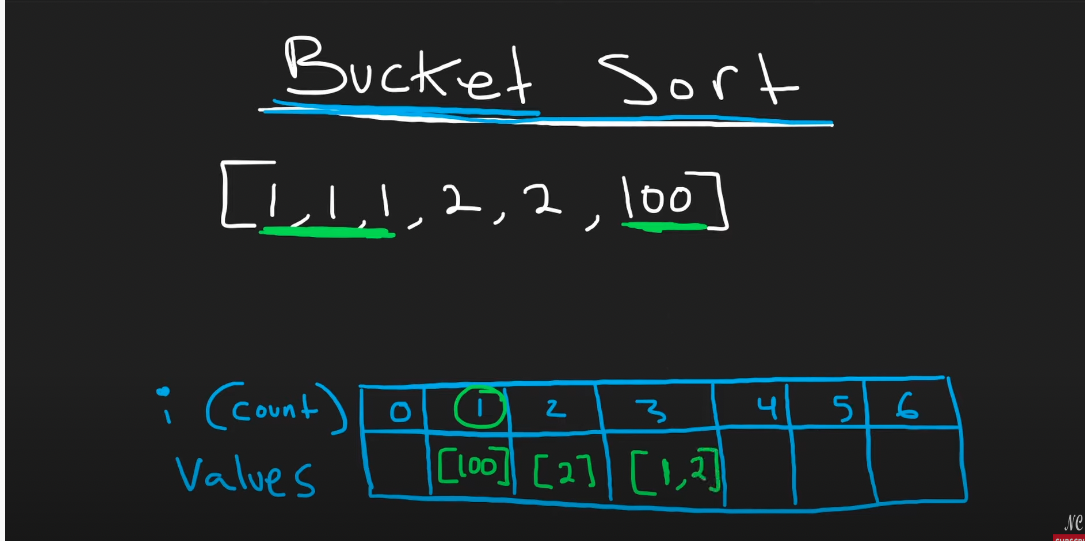 Bucket Sort
[1,1,1,2,2,100]
i (count) 0 1 2 3 4 5 6
Values [100] [2] [1,2]
NC